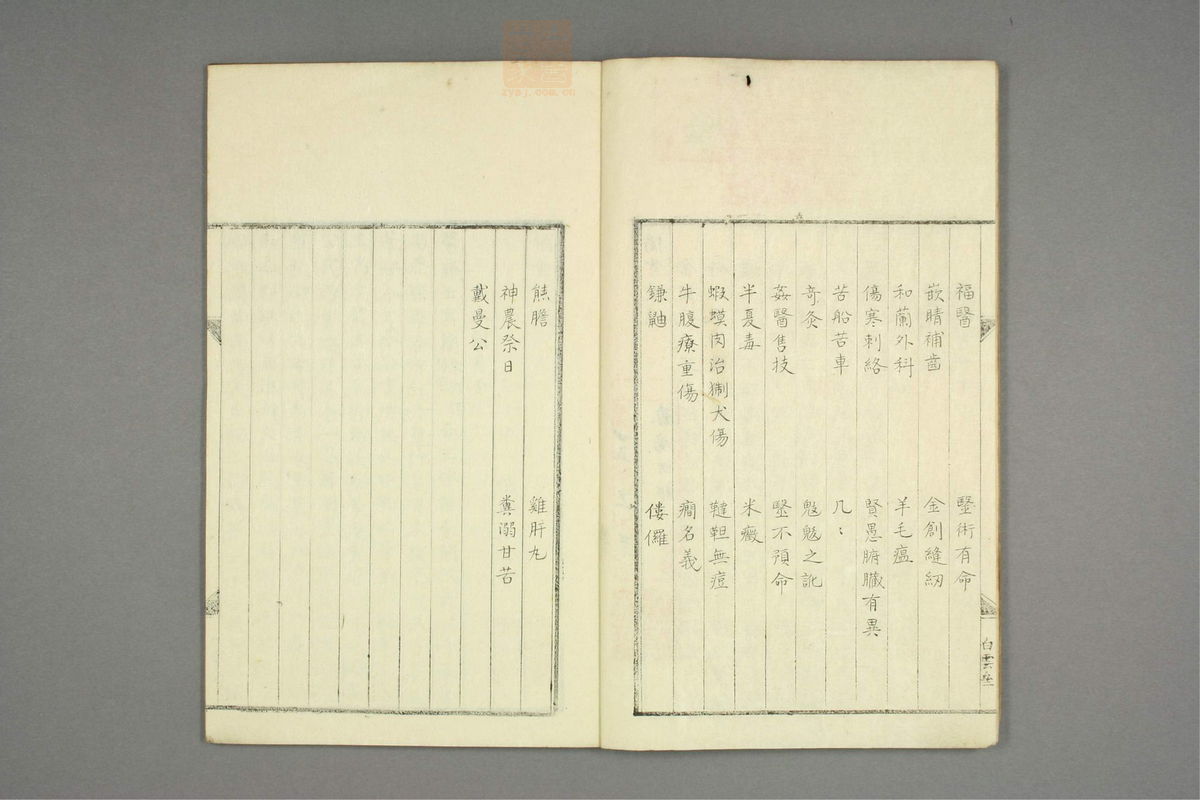 福醫　毉術有命
嵌睛補齒　金創縫紉
和蘭外科　羊毛瘟
傷寒刺絡　賢愚腑臟有異
苦船苦車　几〻
奇灸　之訛
姦醫售技　毉不預命
半夏毒　米癥
蝦蟆肉治猘犬傷　韃靼無痘
牛腹療重傷　癇名義
鎌鼬　僂儸
白雲
熊膽　雞肝丸
神農祭日　糞溺甘苦
戴曼公
zysj.com.cn